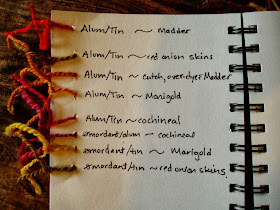 Alum/Tin ~ Madder
Alum/Tin ~ red onion skins
Alum/Tin ~ cutch, overdyed Madder
Alum/Tin ~ Marigold
Alum/Tin ~ cochineal
xmordant/alum - cochineal
xmordant/tin ~ Marigold
xmordant/tin ~ red onion skins